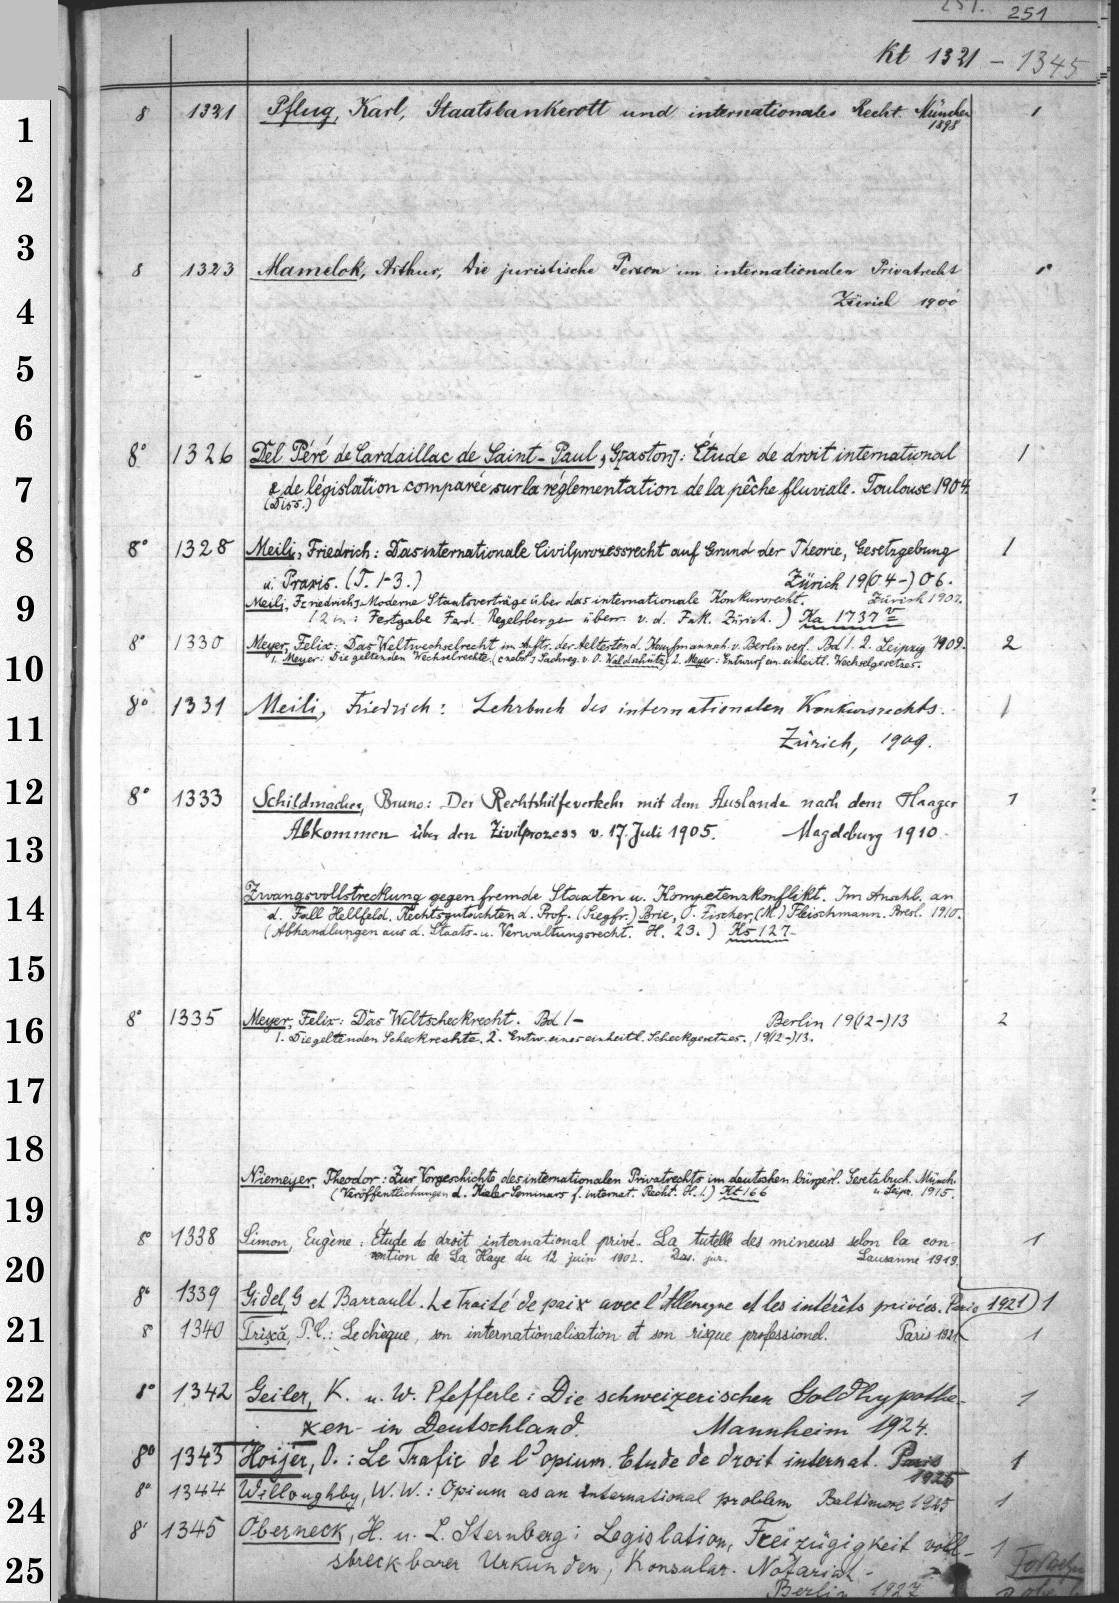 251. 251
Kt 1321 - 1345
1
8 1321 Pflug, Karl, Staatsbankerott und internationales Recht. München 1
1898
2
3
8 1323 Mamelok, Arthur, Die juristische Person im internationalen Privatrecht 1
4
Zürich 1900
5
6
8° 1326 Del Péré de Cardaillac de Saint-Paul, G[aston]: Étude de droit international 1
7
& de législation comparée sur la réglementation de la pêche fluviale. Toulouse 1904.
(Diss.)
8
8° 1328 Meili, Friedrich: Das internationale Civilprozessrecht auf Grund der Theorie, Gesetzgebung 1
u. Praxis. (T. 1-3.) Zürich 19(04-)06.
9
Meili, Friedrich: Moderne Staatsverträge über das internationale Konkursrecht. Zürich 1907.
(2 in: Festgabe Ferd. Regelsberger überr. v. d. Fak. Zürich.) Ka 1737 v
10
8° 1330 Meyer, Felix: Das Weltwechselrecht im Auftr. der Aeltesten d. Kaufmannsch. v. Berlin verf. Bd 1. 2. Leipzig 1909. 2
1. Meyer: Die geltenden Wechselrechte (nebst Sachreg. v. O. Waldschütz) 2. Meyer: Entwurf ein. einheitl. Wechselgesetzes.
11
8° 1331 Meili, Friedrich: Lehrbuch des internationalen Konkursrechts. 1
Zürich, 1909.
12
8° 1333 Schildmacher, Bruno: Der Rechtshilfeverkehr mit dem Auslande nach dem Haager 1
13
Abkommen über den Zivilprozess v. 17. Juli 1905. Magdeburg 1910.
14
Zwangsvollstreckung gegen fremde Staaten u. Kompetenzkonflikt. Im Anschl. an
d. Fall Hellfeld. Rechtsgutachten d. Prof. (Siegfr.) Brie, O. Fischer, (M.) Fleischmann. Bresl. 1910.
(Abhandlungen aus d. Staats- u. Verwaltungsrecht. H. 23.) Ks 127
15
16
8° 1335 Meyer, Felix: Das Weltscheckrecht. Bd 1- Berlin 19(12-)13 2
1. Die geltenden Scheckrechte. 2. Entw. eines einheitl. Scheckgesetzes. 19(12-)13.
17
18
Niemeyer, Theodor: Zur Vorgeschichte des internationalen Privatrechts im deutschen bürgerl. Gesetzbuch. Münch.
(Veröffentlichungen d. Kieler Seminars f. internat. Recht. H. 1.) Kt 166 u. Leipz. 1915.
19
8° 1338 Simon, Eugène: Étude de droit international privé. La tutelle des mineurs selon la con- 1
vention de La Haye du 12 juin 1902. Diss. jur. Lausanne 1919.
20
8° 1339 Gidel, G et Barrault. Le Traité de paix avec l'Allemagne et les intérêts privés. Paris 1921 1
21
8 1340 Trişcă, P. C.: Le chèque, son internationalisation et son risque professionel. Paris 1921 1
22
8° 1342 Geiler, K. u. W. Pfefferle: Die schweizerischen Goldhypothe- 1
ken in Deutschland. Mannheim 1924.
23
8° 1343 Hoijer, O.: Le Trafic de l'opium. Etude de droit internat. Paris 1
1925
24
8° 1344 Willoughby, W. W.: Opium as an international problem Baltimore 1925 1
8° 1345 Oberneck, H. u. L. Sternberg: Legislation, Freizügigkeit voll- 1
25
streckbarer Urkunden, Konsular. Notariat.
Berlin 1927